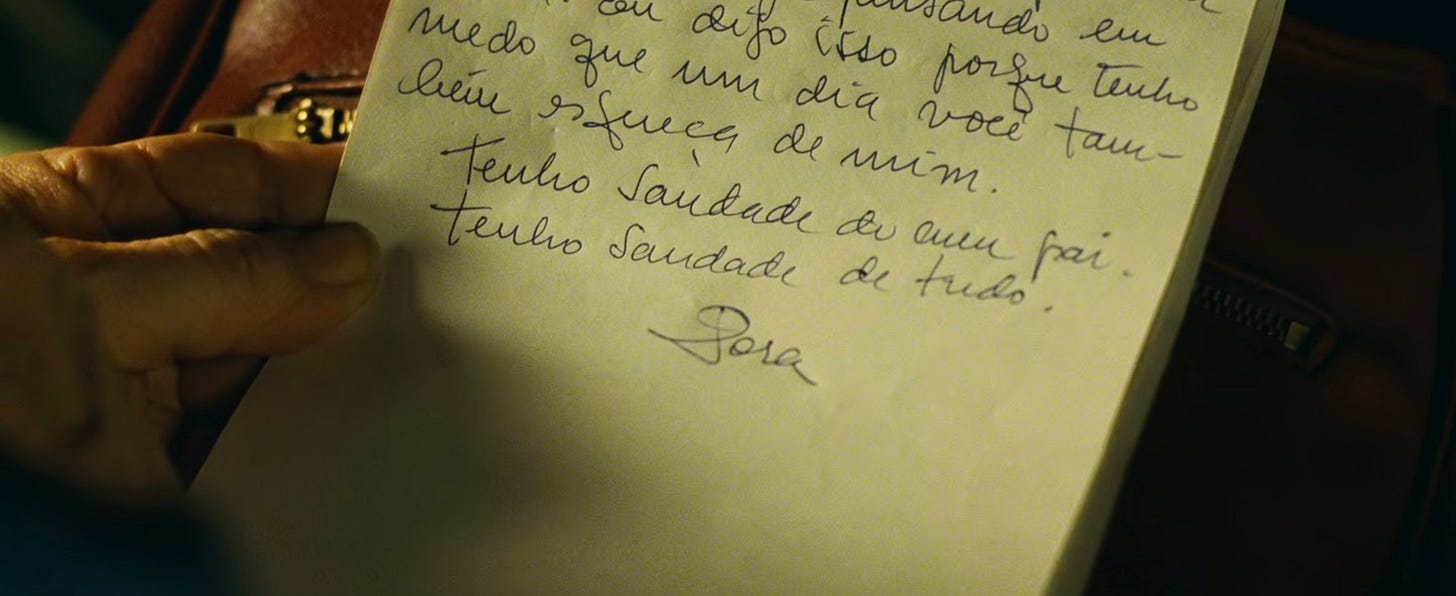 pensando em
eu digo isso porque tenho
medo que um dia você tam-
bém esqueça de mim.
Tenho saudade do meu pai.
tenho saudade de tudo.
Dora